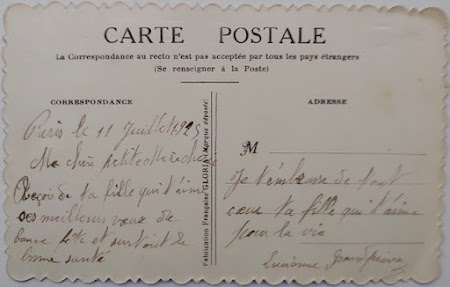 CARTE POSTALE
La Correspondance au recto n'est pas acceptée par tous les pays étrangers
(Se renseigner à la Poste)
CORRESPONDANCE
Paris le 11 Juillet 1925
Ma chère petite Mère chérie
Reçois de ta fille qui t'aime
ses meilleurs vœux de
bonne fête et surtout de
bonne santé
Fabrication Française GLORIA (Marque déposée)
ADRESSE
M
Je t'embrasse de tout
cœur ta fille qui t'aime
pour la vie
Lucienne